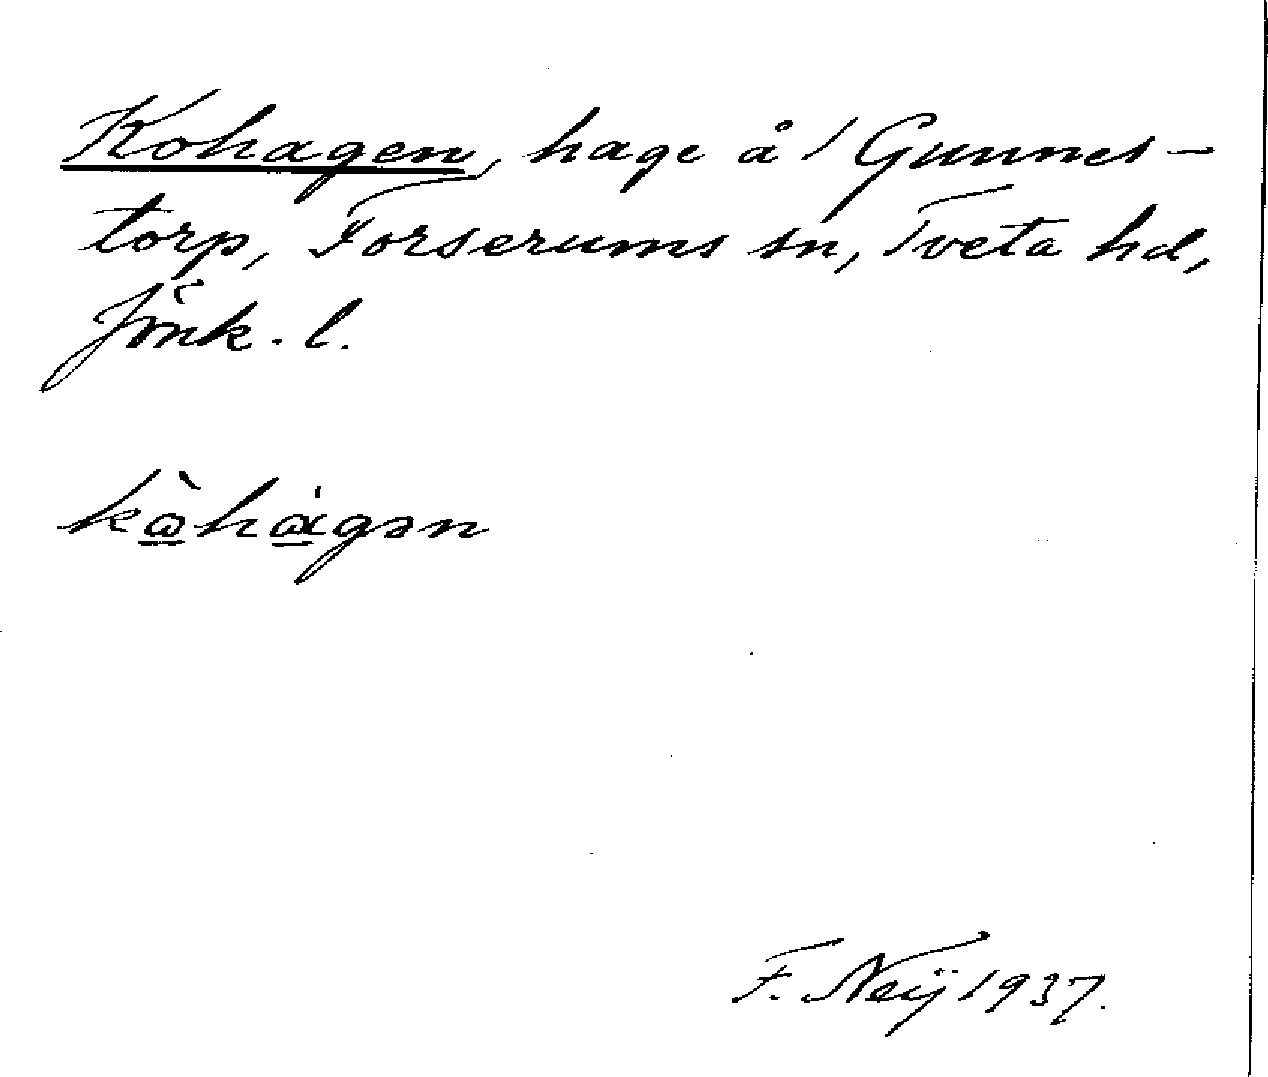 Kohagen, hage å / Gunnes-
torp, Forserums sn, Tveta hd,
Jönk. l.
kὼ̠hɑ̠̀gən
F. Neij 1937.